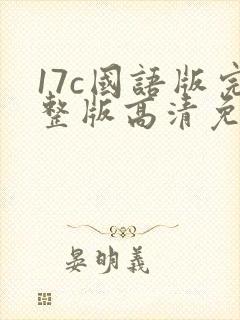 17c國語版完
整版高清免
晏明義